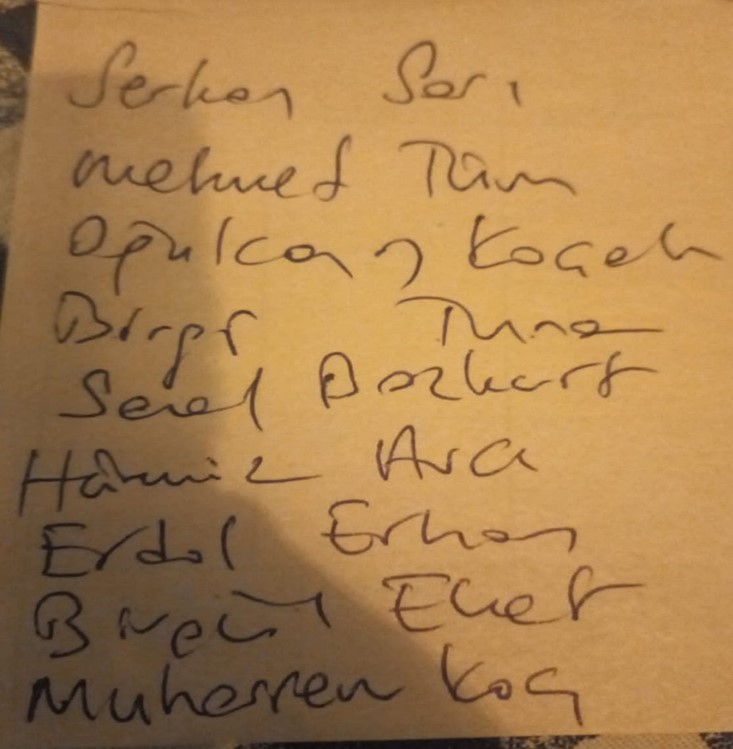 Serkan Sarı
Mehmet Tüm
Oğulcan Koçak
Tuna
Sedef Bozkurt
Hamiz Avcı
Erdal Erhan
Ekef
Muharrem Koç